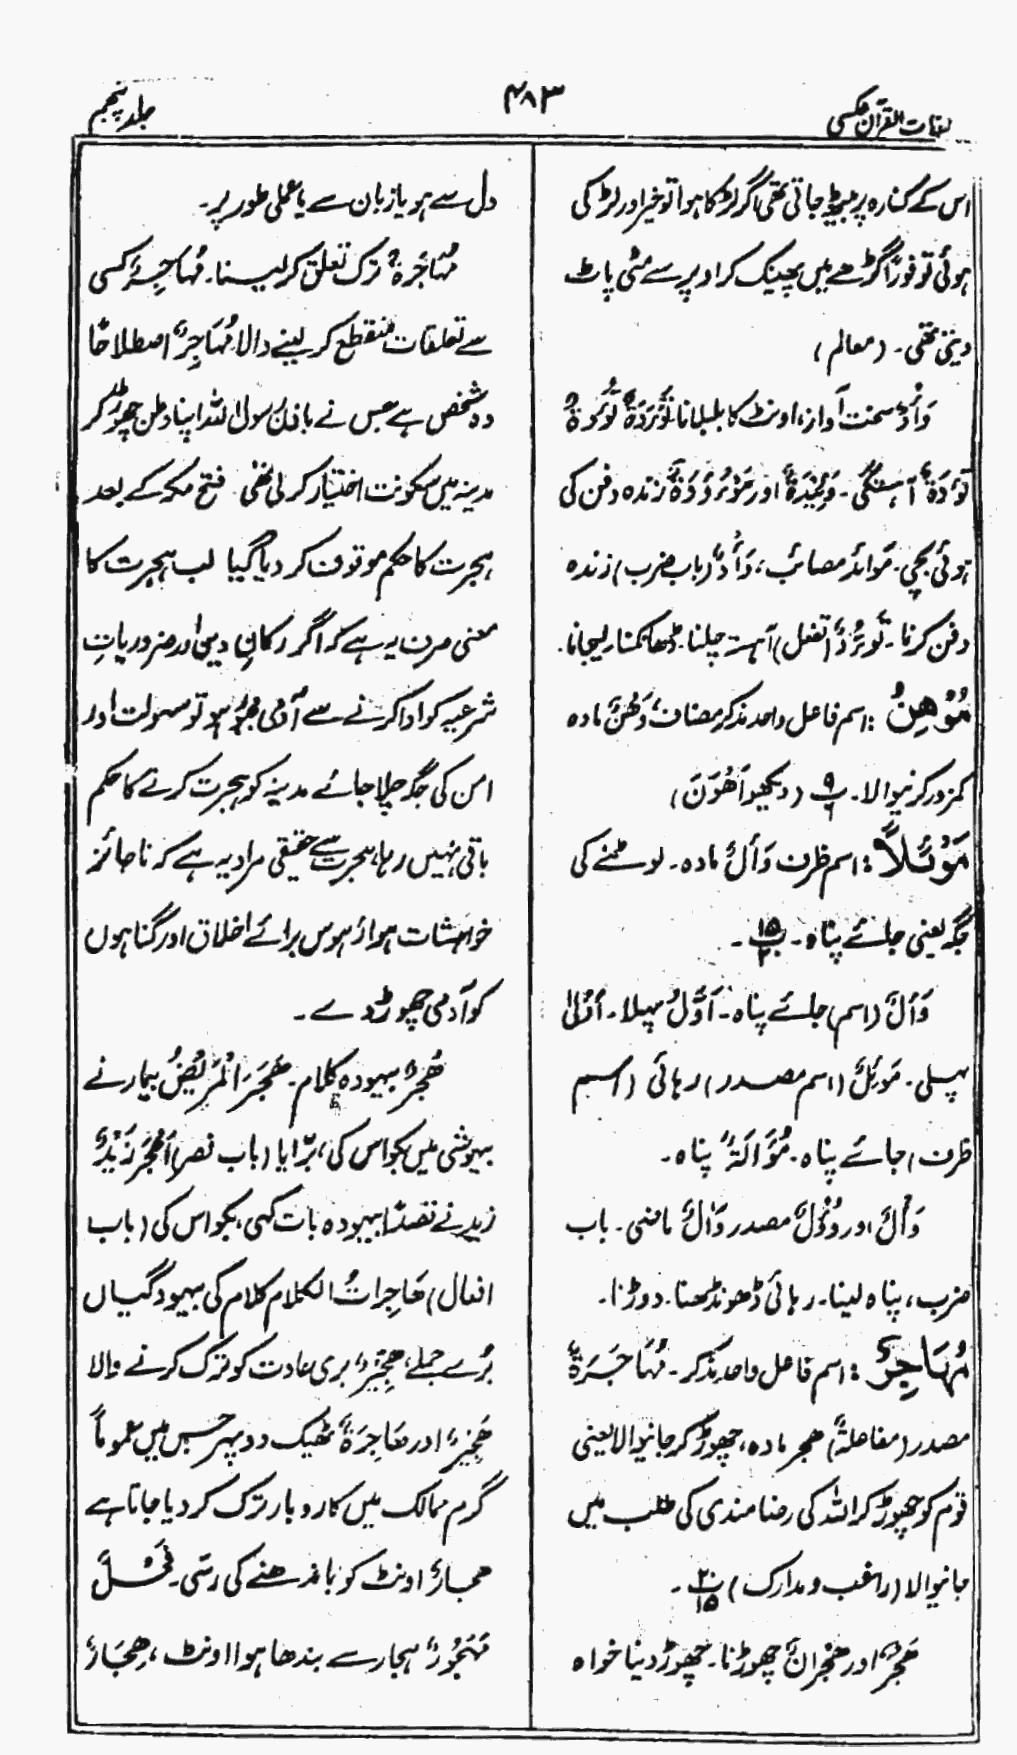 لغات القرآن عکسی
۴۸۳
جلد پنجم
اس کے کنارہ پر بیٹھ جاتی تھی اگر لڑکا ہوا تو خیر اور لڑکی
ہوئی تو فوراً گڑھے میں پھینک کر اوپر سے مٹی پاٹ
دیتی تھی۔ (معالم)
وَأْدٌ سخت آواز، اونٹ کا بلبلانا تُؤَدَةٌ تُؤْدَةٌ
تَوْءَدَةٌ آہستگی۔ وَئِیْدَةٌ اور مَوْءُوْدَةٌ زندہ دفن کی
ہوئی بچی۔ مَوَائِد مصائب، وَأْدٌ (باب ضرب) زندہ
دفن کرنا۔ تَوَءُّدٌ (تفعل) آہستہ چلنا۔ ڈھانکنا لیجانا۔
مُوْهِنُ: اسم فاعل واحد مذکر مضاف، وَهْنٌ مادہ
کمزور کرنیوالا۔ پ ۹ (دیکھو اَهْوَنَ)
مَوْئِلًا: اسم ظرف وَأْلٌ مادہ۔ لوٹنے کی
جگہ یعنی جائے پناہ۔ پ ۱۵/۲۰۔
وَأْلٌ (اسم) جائے پناہ۔ اَوَّلُ پہلا۔ اُوْلٰی
پہلی۔ مَوْئِلٌ (اسم مصدر) رہائی (اسم
ظرف) جائے پناہ۔ مُؤَالَةٌ پناہ۔
وَأْلٌ اور وُؤُوْلٌ مصدر وَأَلَ ماضی۔ باب
ضرب، پناہ لینا۔ رہائی ڈھونڈھنا۔ دوڑنا۔
مُهَاجِرٌ: اسم فاعل واحد مذکر۔ مُهَاجَرَةٌ
مصدر (مفاعلة) هجر مادہ، چھوڑ کر جانیوالا یعنی
قوم کو چھوڑ کر اللہ کی رضامندی کی طلب میں
جانیوالا (راغب و مدارک) پ ۲۰/۱۵۔
هَجْرٌ اور هِجْرَانٌ چھوڑنا۔ چھوڑ دینا خواہ
دل سے ہو یا زبان سے یا عملی طور پر۔
مُهَاجَرَةٌ ترک تعلق کر لینا۔ مُهَاجِرٌ کسی
سے تعلقات منقطع کر لینے والا، مُهَاجِرٌ اصطلاحًا
وہ شخص ہے جس نے باذن رسول اللہ اپنا وطن چھوڑ کر
مدینہ میں سکونت اختیار کر لی تھی۔ فتح مکہ کے بعد
ہجرت کا حکم موقوف کر دیا گیا اب ہجرت کا
معنی صرف یہ ہے کہ اگر ارکانِ دین اور ضروریاتِ
شرعیہ کو ادا کرنے سے آدمی مجبور ہو تو سہولت اور
امن کی جگہ چلا جائے مدینہ کو ہجرت کرنے کا حکم
باقی نہیں رہا، ہجرت سے حقیقی مراد یہ ہے کہ ناجائز
خواہشات ہوا و ہوس برائے اخلاق اور گناہوں
کو آدمی چھوڑ دے۔
هُجْرٌ بیہودہ کلام۔ هَجَرَ الْمَرِیْضُ بیمار نے
بیہوشی میں بکواس کی، برّایا (باب نصر) اَهْجَرَ زَیْدٌ
زید نے قصدًا بیہودہ بات کہی، بکواس کی (باب
افعال) هَاجِرَاتُ الکلام کلام کی بیہودگیاں
بُرے جملے، هِجِّیْرٌ بری عادت کو ترک کرنے والا
هَجِیْرٌ اور هَاجِرَةٌ ٹھیک دوپہر جس میں عمومًا
گرم ممالک میں کاروبار ترک کر دیا جاتا ہے
هجار اونٹ کو باندھنے کی رسّی۔ فَحْلٌ
مَهْجُوْرٌ ہجار سے بندھا ہوا اونٹ، هِجَارٌ